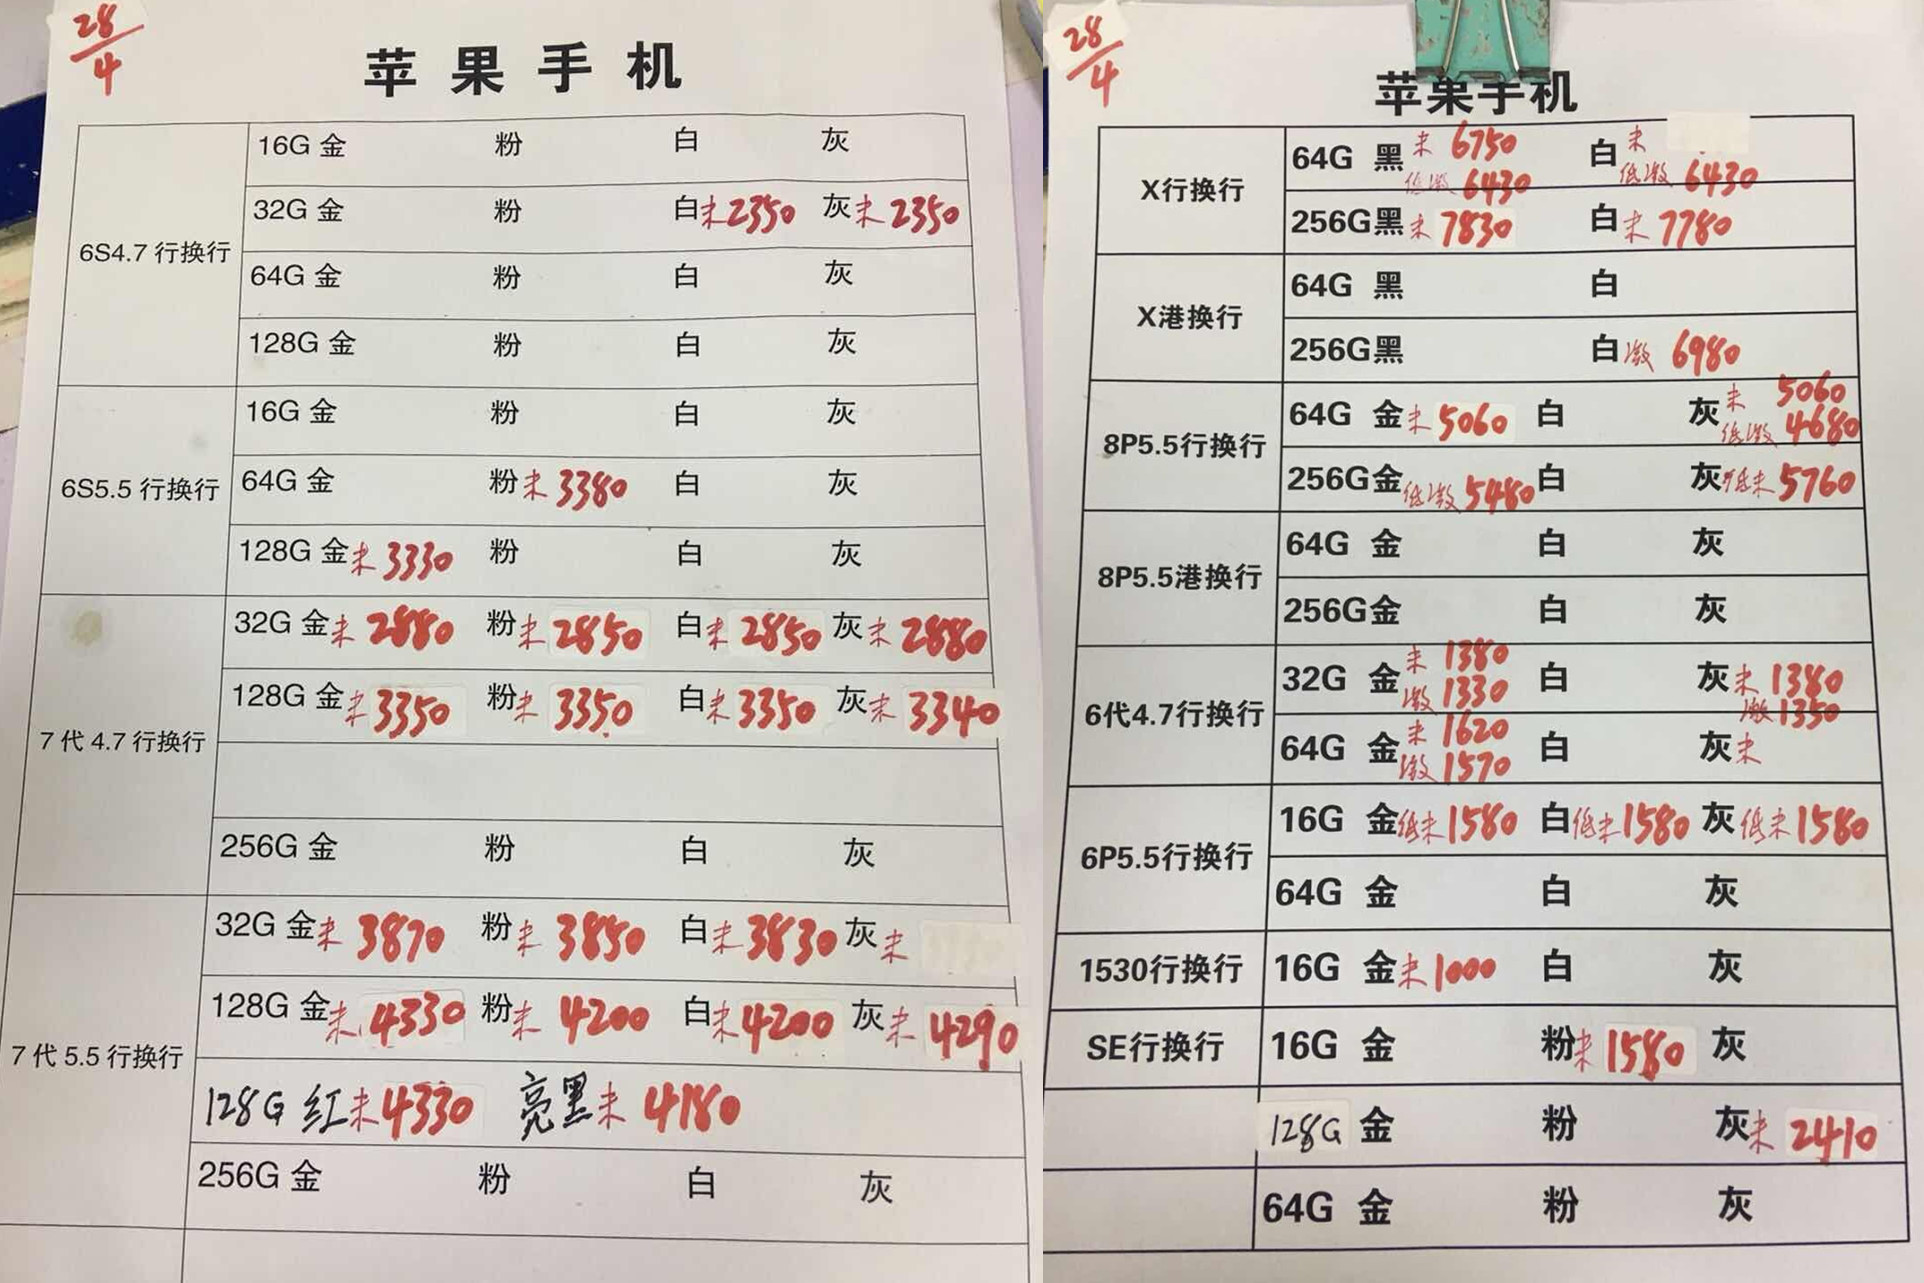 28/4
苹果手机
6S4.7 行换行
16G 金 粉 白 灰
32G 金 粉 白 未 2350 灰 未 2350
64G 金 粉 白 灰
128G 金 粉 白 灰
6S5.5 行换行
16G 金 粉 白 灰
64G 金 粉 未 3380 白 灰
128G 金 未 3330 粉 白 灰
7 代 4.7 行换行
32G 金 未 2880 粉 未 2850 白 未 2850 灰 未 2880
128G 金 未 3350 粉 未 3350 白 未 3350 灰 未 3340
256G 金 粉 白 灰
7 代 5.5 行换行
32G 金 未 3870 粉 未 3850 白 未 3830 灰 未
128G 金 未 4330 粉 未 4200 白 未 4200 灰 未 4290
128G 红 未 4330 亮黑 未 4180
256G 金 粉 白 灰
28/4
苹果手机
X行换行
64G 黑 未 6750 白 未
低激 6430 低激 6430
256G黑 未 7830 白 未 7780
X港换行
64G 黑 白
256G黑 白 激 6980
8P5.5行换行
64G 金 未 5060 白 灰 未 5060
低激 4680
256G金 低激 5480 白 灰 低未 5760
8P5.5港换行
64G 金 白 灰
256G金 白 灰
6代4.7行换行
32G 金 未 1380 白 灰 未 1380
激 1330 激 1350
64G 金 未 1620 白 灰 未
激 1570
6P5.5行换行
16G 金 低未 1580 白 低未 1580 灰 低未 1580
64G 金 白 灰
1530行换行
16G 金 未 1000 白 灰
SE行换行
16G 金 粉 未 1580 灰
128G 金 粉 灰 未 2410
64G 金 粉 灰